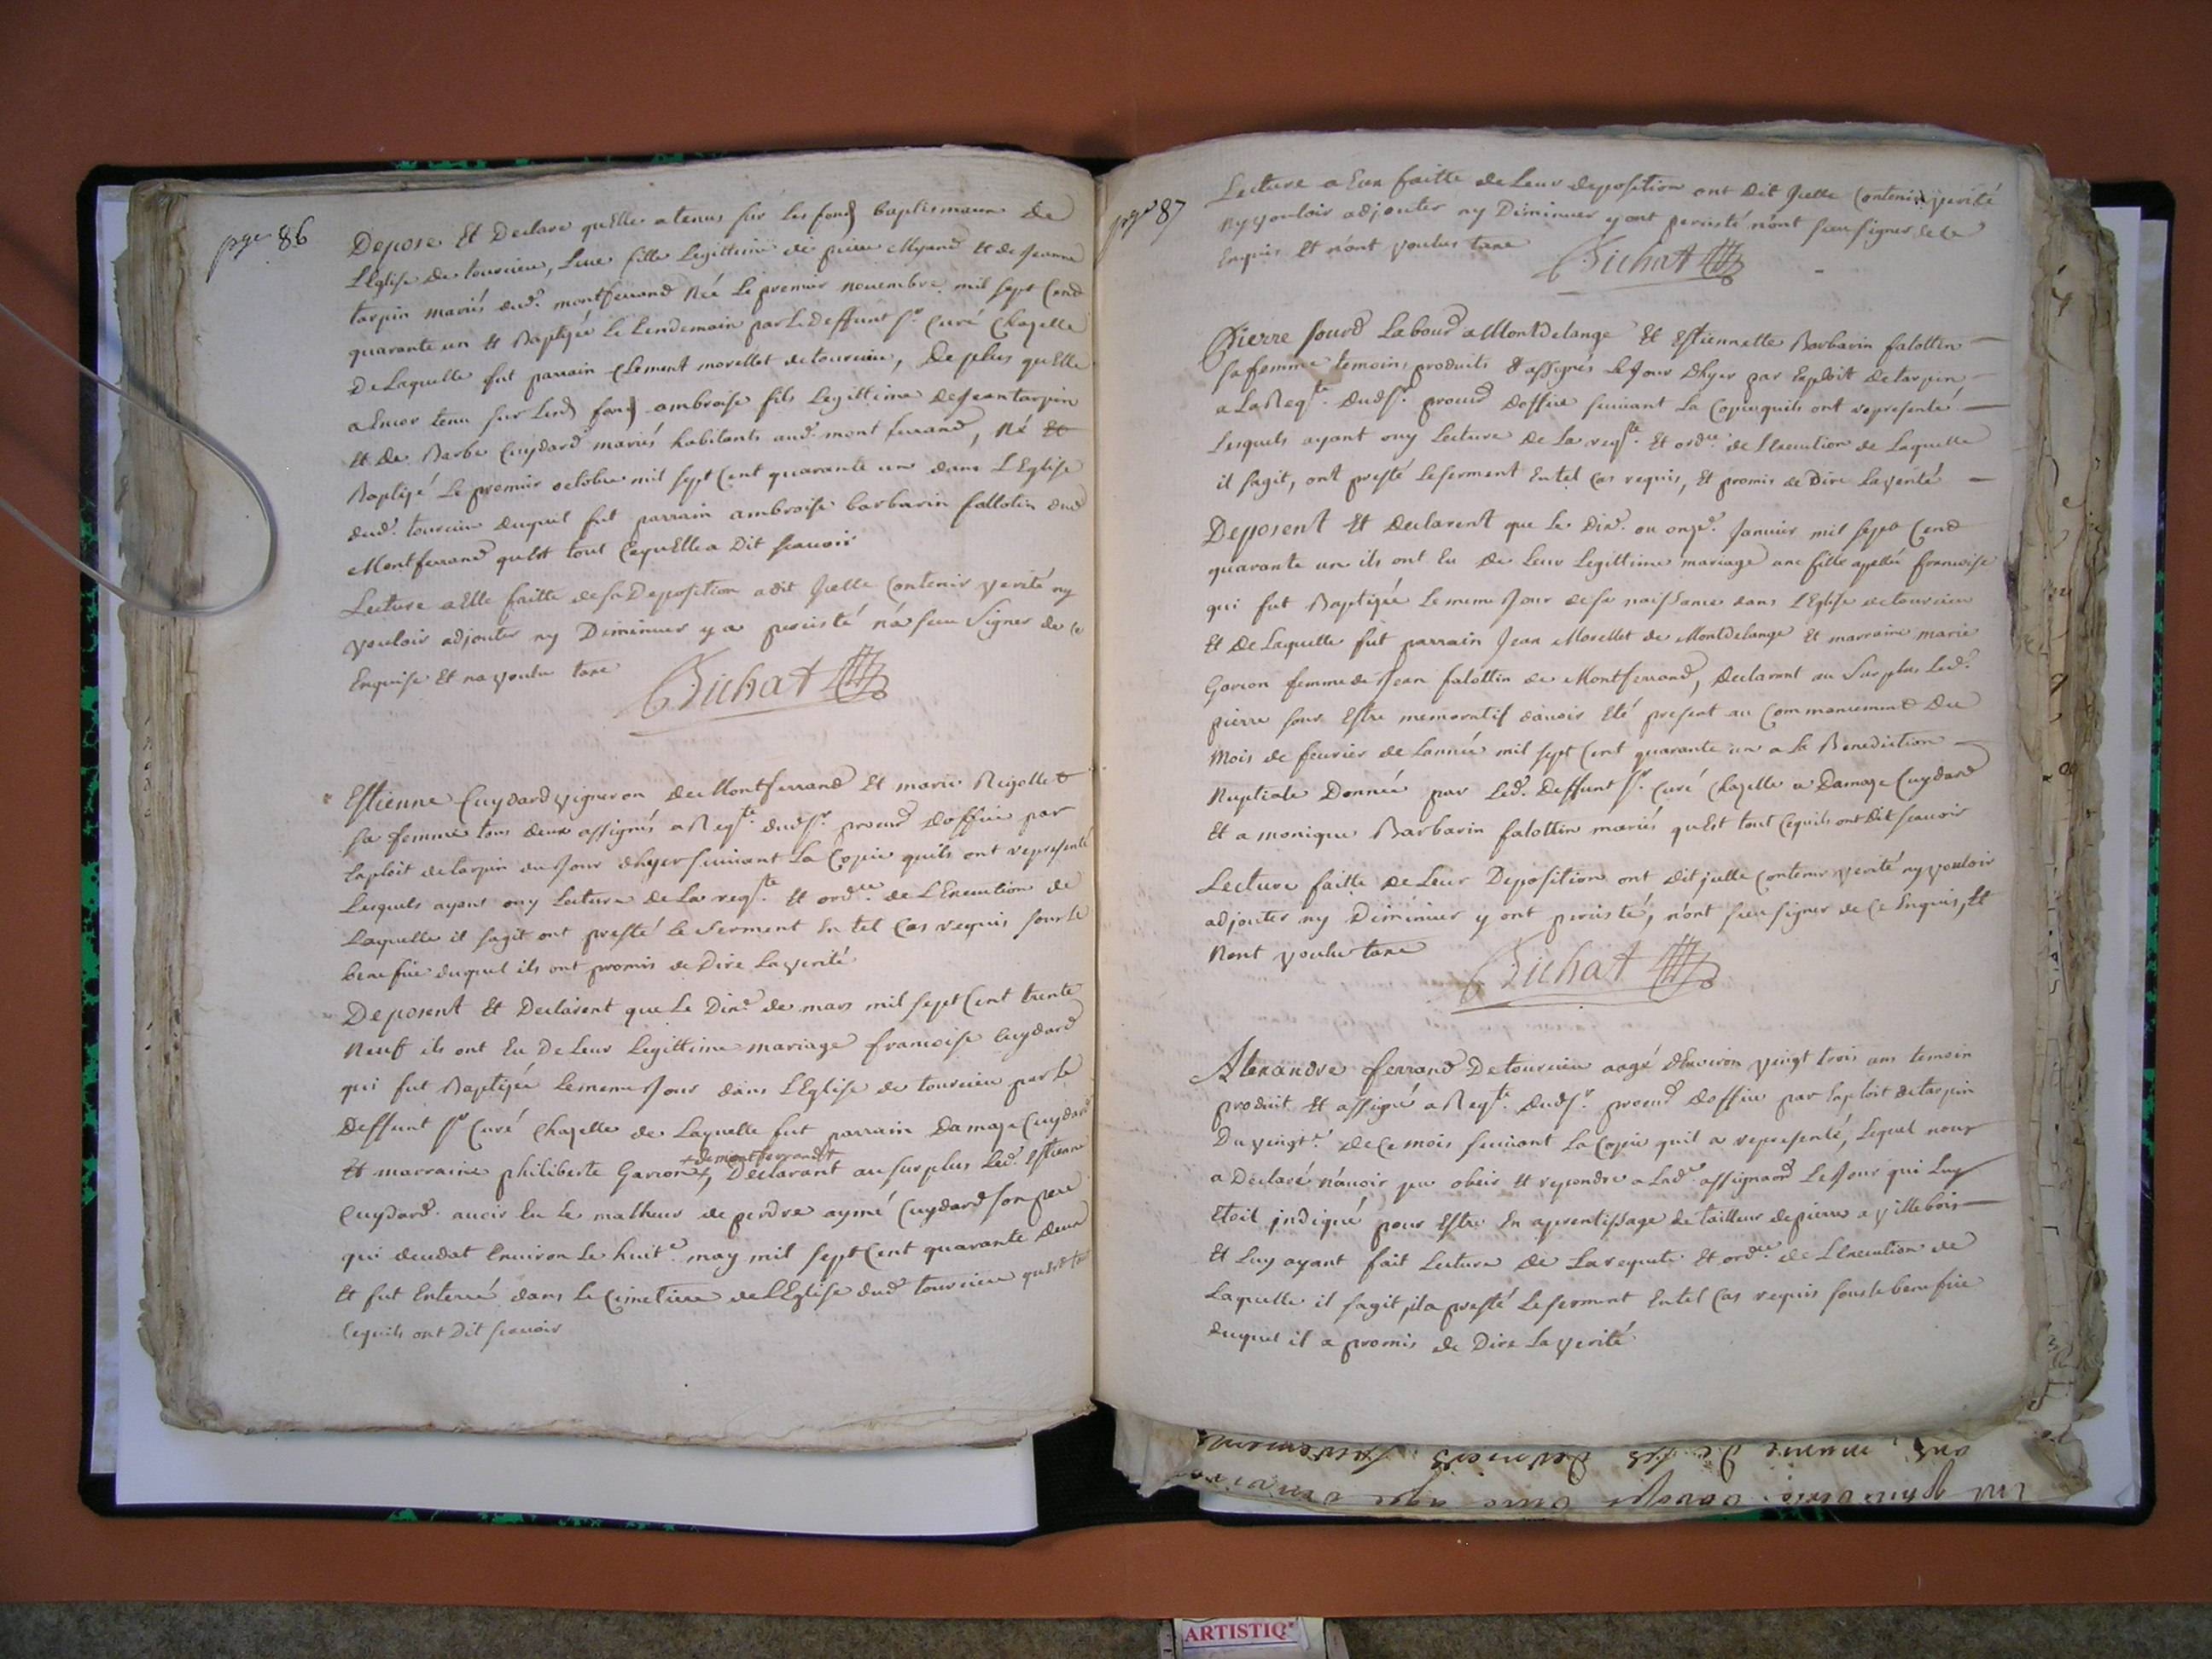 pge 86
Depose Et Declare quElle a tenus sur les fonds baptismaux de
L'Eglise de tourcieu, Luce fille Legittime de pierre Myand Et de Jeanne
tarpin mariés dud. montferrand Née Le premier novembre mil sept Cend
quarante un Et Baptizée Le Lendemain par Le Deffunt Sr. Curé Chazelle
De Laquelle fut parrain Clement morellet de tourcieu, De plus quElle
a Encor tenu sur Lesd. fonds ambroise fils Legittime de Jean tarpin
Et de Barbe Cuydard mariés habitants aud. mont ferrand, Né Et
Baptizé Le premier octobre mil sept Cent quarante un dans L'Eglise
dud. tourcieu duquel fut parrain ambroise barbarin fallotin dud
Montferrand quEst tout CequElle a Dit scauoir
Lecture a Elle faitte de sa Deposition a dit Icelle Contenir verité ny
vouloir adjouter ny Diminuer y a percisté n'a sceu Signer de ce
Enquise Et na voulu taxe Bichat
Estienne Cuydard vigneron de Montferrand Et marie Rigollet
sa femme tous deux assignés a Reqte. dud Sr. procurd Doffice par
Exploit de tarpin du Jour dhyer suiuant La Copie quils ont representé
Lesquels ayant ouy Lecture de La reqte. Et ordce. de LExecution de
Laquelle il sagit ont presté Le Serment En tel Cas requis sous Le
benefice duquel ils ont promis de Dire La verité
Deposent Et Declarent que Le Dixe. de mars mil sept Cent trente
Neuf ils ont Eu De Leur Legittime mariage francoise Cuydard
qui fut Baptizée Le meme Jour dans L'Eglise de tourcieu par Le
Deffunt Sr Curé Chazelle de Laquelle fut parrain Damaze Cuydard
+ de montferrand +
Et marraine philiberte Garion +, Declarant au surplus Led. Estienne
Cuydard auoir Eu Le malheur de perdre aymé Cuydard son pere
qui decedat Enuiron Le huite may mil sept Cent quarante deux
Et fut Enterré dans Le Cimetiere de L'Eglise dud tourcieu quest tout
Cequils ont Dit scauoir
pge 87
Lecture a Eux faitte de Leur deposition ont Dit Icelle Contenir verité
Ny vouloir adjouter ny Diminuer y ont percisté n'ont sceu signer de ce
Enquis Et n'ont voulus taxe Bichat
Pierre sourd Labourd a Montdelange Et Estiennette Barbarin falottin
sa femme temoins produits & assignés Le Jour dhyer par Exploit de tarpin
a La Reqte. dud Sr. procurd Doffice suiuant La Copie quils ont representé
Lesquels ayant ouy Lecture de La reqte. Et ordce. de LExecution de Laquelle
il sagit, ont presté Le serment En tel Cas requis, Et promis de Dire La verité
Deposent Et declarent que Le Dixe. ou onze. Januier mil sept Cend
quarante un ils ont Eu de Leur Legittime mariage une fille apellée francoise
qui fut Baptizée Le meme Jour de sa naissance dans L'Eglise de tourcieu
Et De Laquelle fut parrain Jean Morellet de Montdelange Et marraine marie
Garion femme de Jean falottin de Montferrand, declarant au Surplus Led.
pierre sour Estre memoratif d'auoir Eté present au Commancement du
Mois de feurier de Lannée mil sept Cent quarante un a La Benediction
Nuptiale Donnée par Led. Deffunt Sr. Curé Chazelle a Damaze Cuydard
Et a monique Barbarin falottin mariés quEst tout Cequils ont Dit scauoir
Lecture faitte de Leur Deposition ont dit jcelle contenir verité ny vouloir
adjouter ny Diminuer y ont percisté, n'ont sceu signer de ce Enquis, Et
Nont voulu taxe Bichat
Alexandre ferrand De tourcieu aagé dEnviron vingt trois ans temoin
produit Et assigné a Reqte. dud Sr. procurd Doffice par Exploit de tarpin
Du vingte. de ce mois suiuant La Copie quil a representé, Lequel nous
a Declaré n'auoir pu obeir Et repondre a Lade assignaon Le Jour qui Luy
Etoit jndiqué pour Estre En aprentissage de tailleur de pierre a villebois
Et Luy ayant fait Lecture de La requete Et ordce. de LExecution de
Laquelle il sagit, il a presté Le serment En tel Cas requis sous le benefice
duquel il a promis de Dire La verité
ARTISTIQ